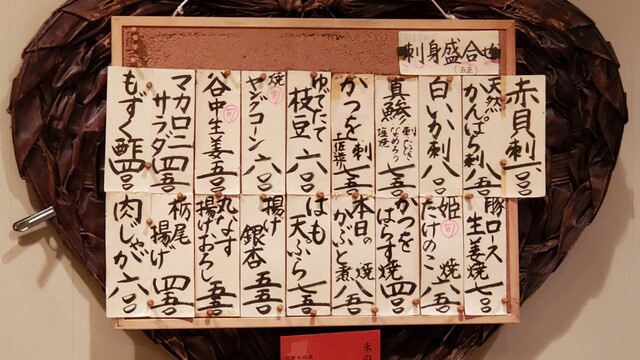 刺身盛合せ
赤貝刺 六〇〇
天然
かんぱち刺 八五〇
白いか刺 八〇〇
真鯵 刺 たたき なめろう 塩焼 七五〇
かつを 刺 土佐造り 七五〇
ゆでたて
枝豆 六〇〇
焼
ヤングコーン 六〇〇
谷中生姜 五五〇
マカロニ
サラダ 四五〇
もずく酢 四五〇
豚ロース
生姜焼 七〇〇
姫
たけのこ 焼 六五〇
かつを
はらす焼 四〇〇
本日の
かぶと煮 焼 八五〇
はも
天ぷら 七五〇
揚げ
銀杏 五五〇
丸なす
揚げおろし 五五〇
栃尾
揚げ 四五〇
肉じゃが 六〇〇